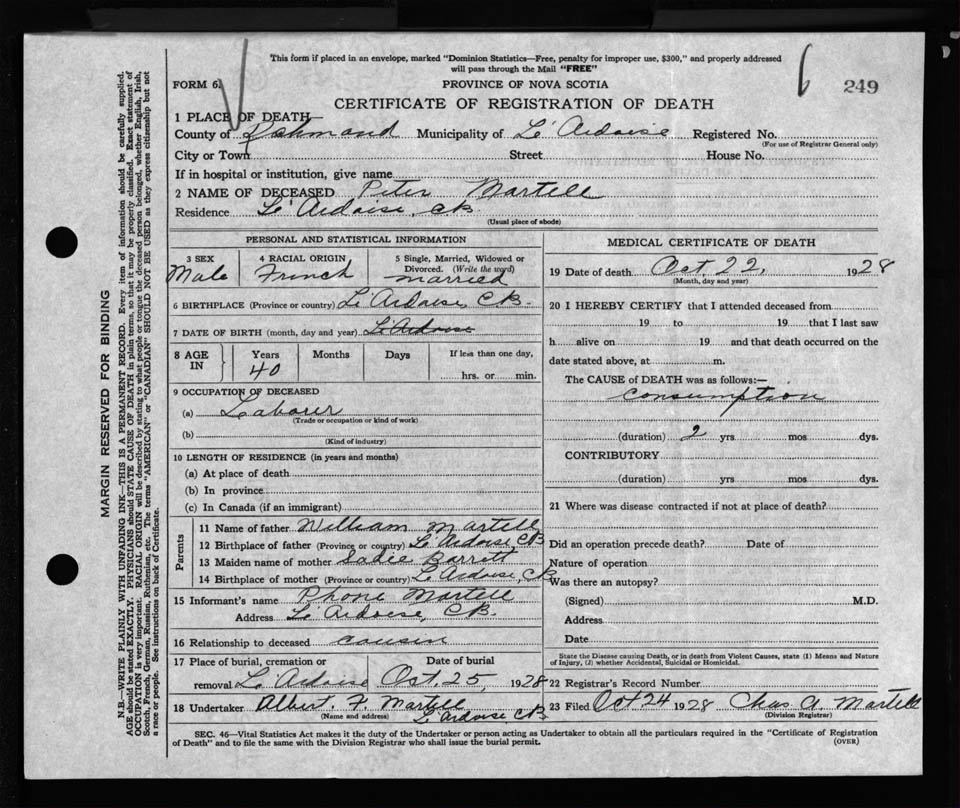 This form if placed in an envelope, marked "Dominion Statistics—Free, penalty for improper use, $300," and properly addressed
will pass through the Mail "FREE"
FORM 6. PROVINCE OF NOVA SCOTIA 6 249
CERTIFICATE OF REGISTRATION OF DEATH
1 PLACE OF DEATH
County of Richmond Municipality of L'Ardoise Registered No.
(For use of Registrar General only)
City or Town Street House No.
If in hospital or institution, give name
2 NAME OF DECEASED Peter Martell
Residence L'Ardoise, CB.
(Usual place of abode)
PERSONAL AND STATISTICAL INFORMATION
3 SEX 4 RACIAL ORIGIN 5 Single, Married, Widowed or
Divorced. (Write the word)
Male French married
6 BIRTHPLACE (Province or country) L'Ardoise, CB.
7 DATE OF BIRTH (month, day and year) L'Ardoise
8 AGE IN Years Months Days If less than one day,
40 hrs. or min.
9 OCCUPATION OF DECEASED
(a) Labourer
(Trade or occupation or kind of work)
(b)
(Kind of industry)
10 LENGTH OF RESIDENCE (in years and months)
(a) At place of death
(b) In province
(c) In Canada (if an immigrant)
Parents
11 Name of father William Martell
12 Birthplace of father (Province or country) L'Ardoise, CB
13 Maiden name of mother Sadie Barrett
14 Birthplace of mother (Province or country) L'Ardoise, CB
15 Informant's name Phone Martell
Address L'Ardoise, CB.
16 Relationship to deceased cousin
17 Place of burial, cremation or Date of burial
removal L'Ardoise Oct. 25, 1928
18 Undertaker Albert F. Martell
(Name and address) L'Ardoise CB
MEDICAL CERTIFICATE OF DEATH
19 Date of death Oct. 22, 1928
(Month, day and year)
20 I HEREBY CERTIFY that I attended deceased from
19 to 19 that I last saw
h alive on 19 and that death occurred on the
date stated above, at m.
The CAUSE of DEATH was as follows:—
consumption
(duration) 2 yrs mos dys.
CONTRIBUTORY
(duration) yrs mos dys.
21 Where was disease contracted if not at place of death?
Did an operation precede death? Date of
Nature of operation
Was there an autopsy?
(Signed) M.D.
Address
Date
State the Disease causing Death, or in death from Violent Causes, state (1) Means and Nature
of Injury, (2) whether Accidental, Suicidal or Homicidal.
22 Registrar's Record Number
23 Filed Oct 24 1928 Chas A. Martell
(Division Registrar)
SEC. 46—Vital Statistics Act makes it the duty of the Undertaker or person acting as Undertaker to obtain all the particulars required in the "Certificate of Registration
of Death" and to file the same with the Division Registrar who shall issue the burial permit. (OVER)
MARGIN RESERVED FOR BINDING
N.B.—WRITE PLAINLY WITH UNFADING INK—THIS IS A PERMANENT RECORD. Every item of information should be carefully supplied.
AGE should be stated EXACTLY. PHYSICIANS should STATE CAUSE OF DEATH in plain terms, so that it may be properly classified. Exact statement of
OCCUPATION is very important. RACIAL ORIGIN will be described by stating to what people or tongue the deceased person belonged, whether English, Irish,
Scotch, French, German, Russian, Ruthenian, etc. The terms "AMERICAN" or "CANADIAN" SHOULD NOT BE USED as they express citizenship but not
a race or people. See instructions on back of Certificate.